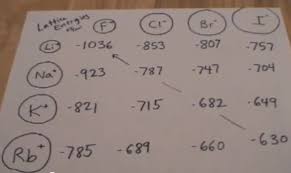 Lattice Energies F⁻ Cl⁻ Br⁻ I⁻
Li⁺ -1036 -853 -807 -757
Na⁺ -923 -787 -747 -704
K⁺ -821 -715 -682 -649
Rb⁺ -785 -689 -660 -630